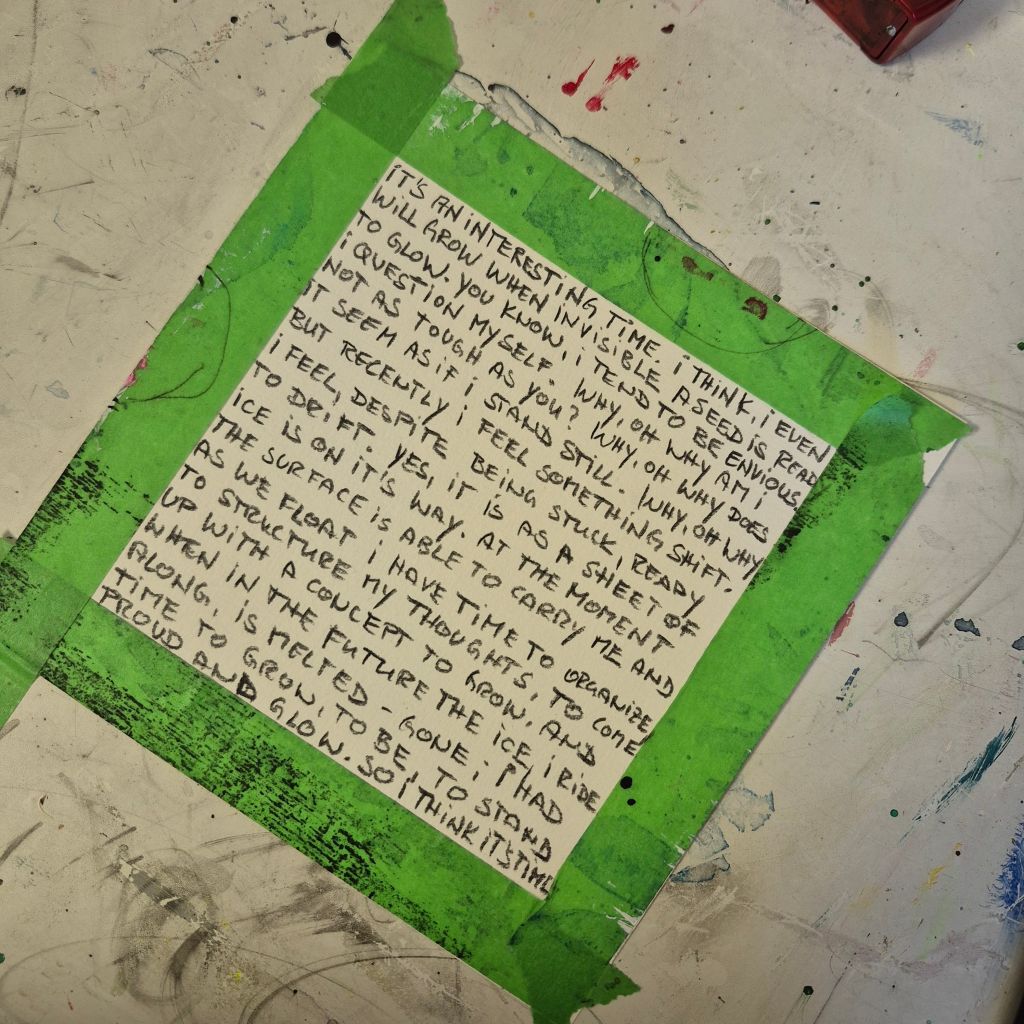 iT'S AN iNTERESTiNG TIME. i THiNK, i EVEN
WiLL GROW WHEN INVISIBLE A SEED iS READ
TO GLOW. YOU KNOW, i TEND TO BE ENVIOUS,
i QUESTION MYSELF. WHY, OH WHY AM i
NOT AS TOUGH AS YOU? WHY, OH WHY DOES
iT SEEM AS iF i STAND STILL. WHY, OH WHY?
BUT RECENTLY i FEEL SOMETHING SHIFT.
i FEEL, DESPITE BEING STUCK, READY
TO DRIFT. YES, IT IS AS A SHEET OF
iCE iS ON iT'S WAY. AT THE MOMENT
THE SURFACE iS ABLE TO CARRY ME AND
AS WE FLOAT i HAVE TIME TO ORGANIZE,
TO STRUCTURE MY THOUGHTS, TO COME
UP WITH A CONCEPT TO GROW. AND
WHEN IN THE FUTURE THE ICE, i RIDE
ALONG, iS MELTED - GONE; i'HAD
TIME TO GROW, TO BE, TO STAND
PROUD AND GLOW. SO i THINK iT'S TIME